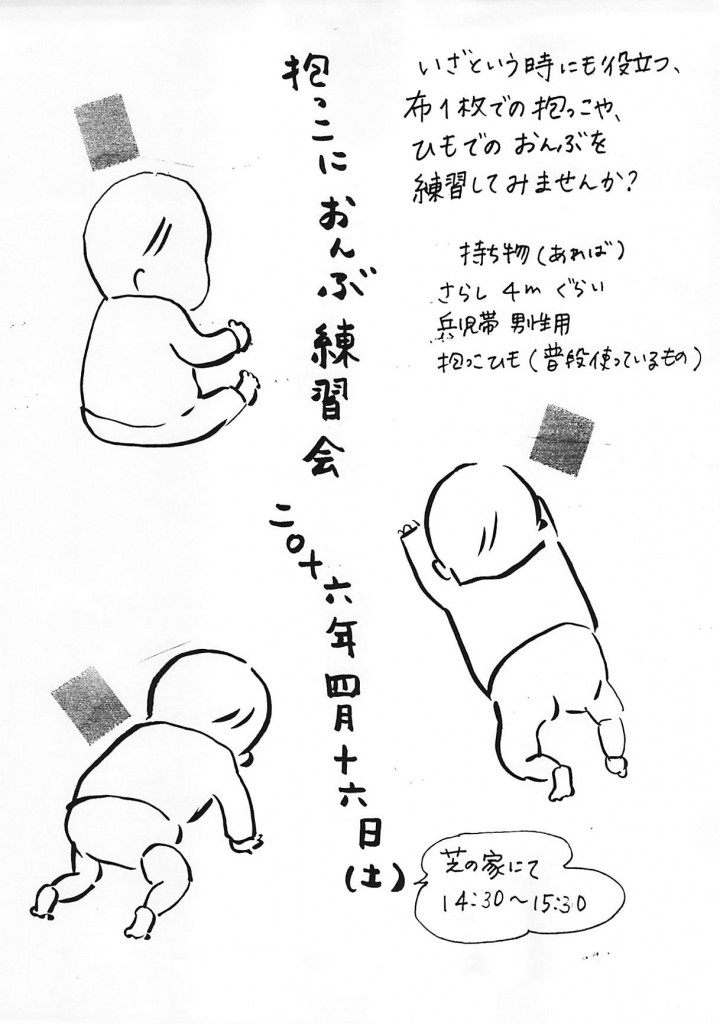 抱っこにおんぶ練習会
二〇十六年四月十六日(土)
いざという時にも役立つ、
布1枚での抱っこや、
ひもでのおんぶを
練習してみませんか?
持ち物(あれば)
さらし 4m ぐらい
兵児帯 男性用
抱っこひも(普段使っているもの)
芝の家にて
14:30〜15:30